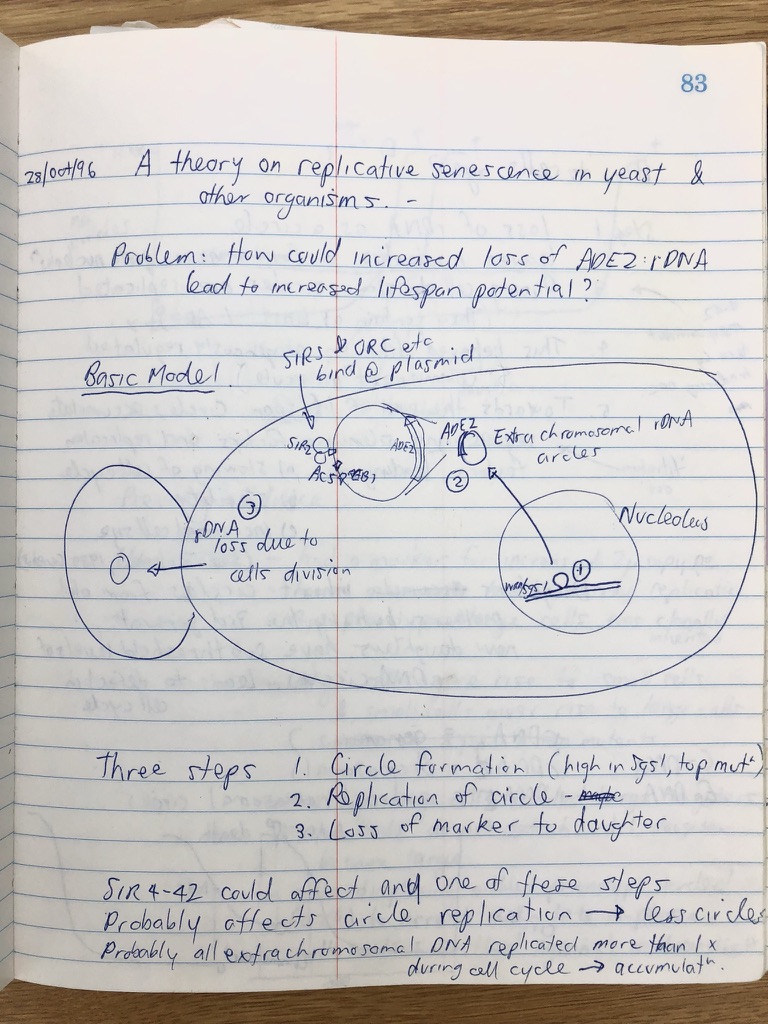 83
28/oct/96 A theory on replicative senescence in yeast &
other organisms. -
Problem: How could increased loss of ADE2:rDNA
lead to increased lifespan potential?
Basic Model.
SIRS & ORC etc
bind @ plasmid
SIR2
ADE2
ADE2
Extrachromosomal rDNA
circles
2
Nucleolus
3
rDNA
loss due to
cells division
1
Three steps 1. Circle formation (high in sgs1, top mutⁿ)
2. Replication of circle -
3. Loss of marker to daughter
SIR4-42 could affect and one of these steps
Probably affects circle replication → less circles
Probably all extrachromosomal DNA replicated more than 1x
during cell cycle → accumulatⁿ.